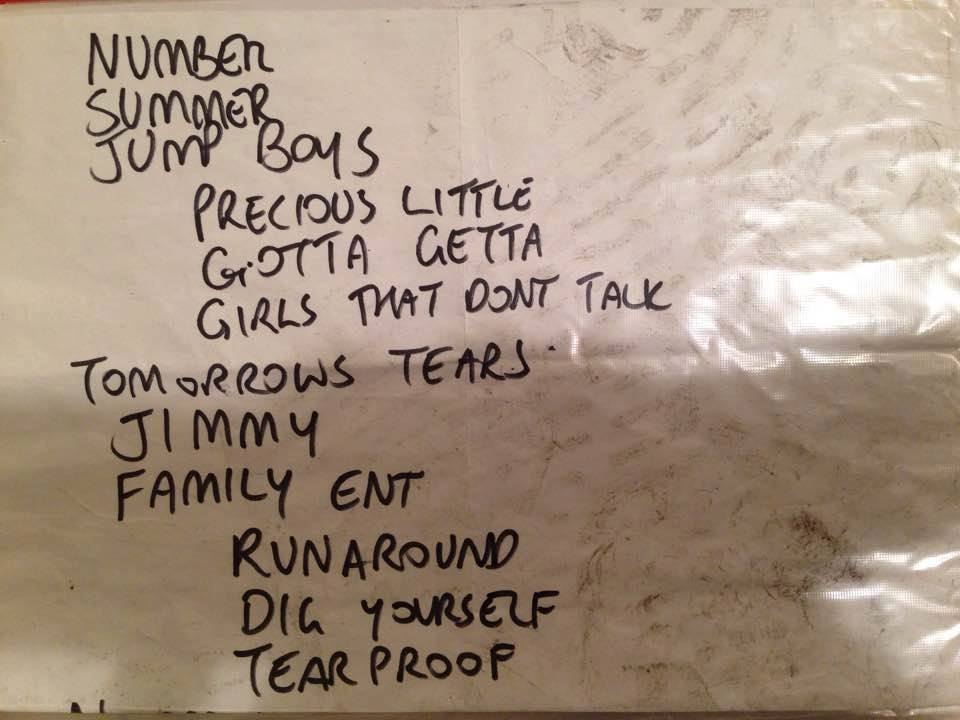 NUMBER
SUMMER
JUMP BOYS
PRECIOUS LITTLE
GOTTA GETTA
GIRLS THAT DONT TALK
TOMORROWS TEARS
JIMMY
FAMILY ENT
RUNAROUND
DIG YOURSELF
TEARPROOF